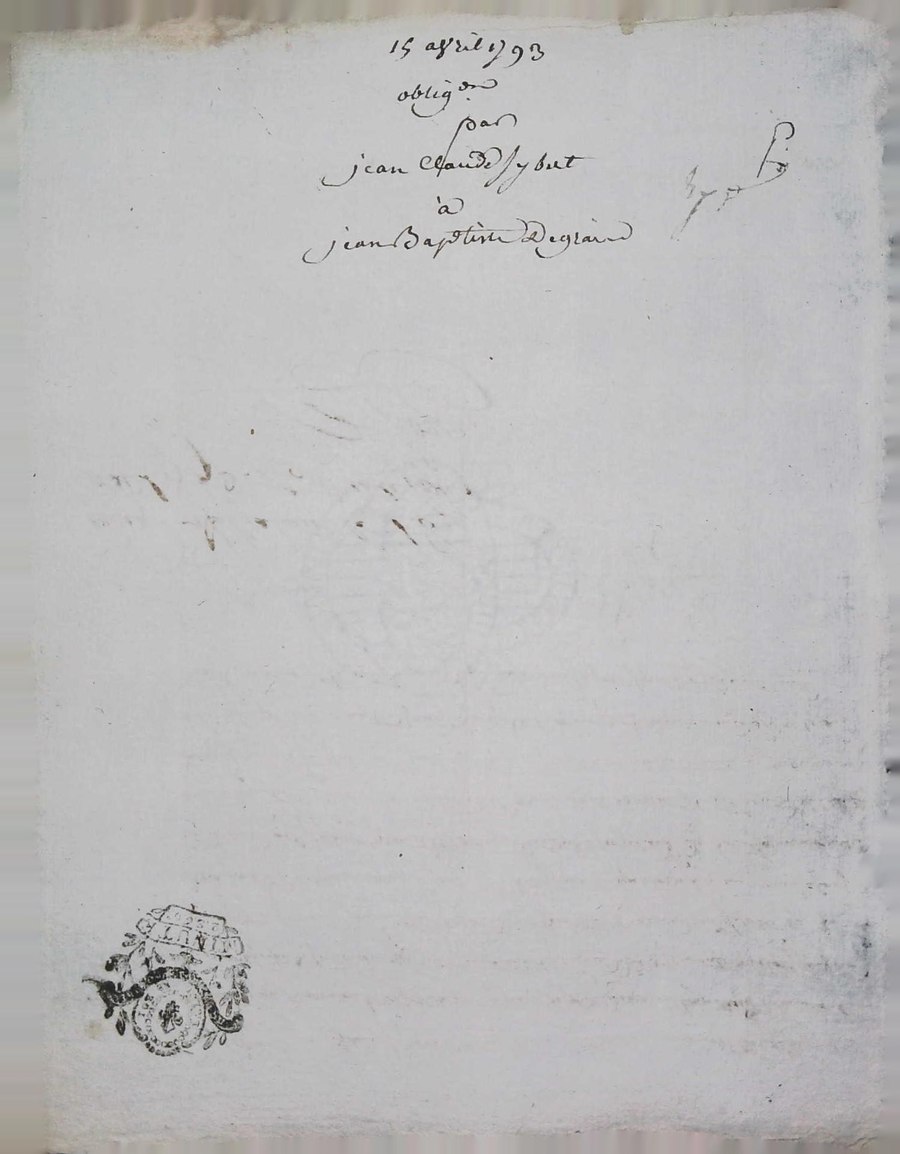 15 avril 1793
oblig.on
par
jean Claude Sybut
à
jean Baptiste Degrain